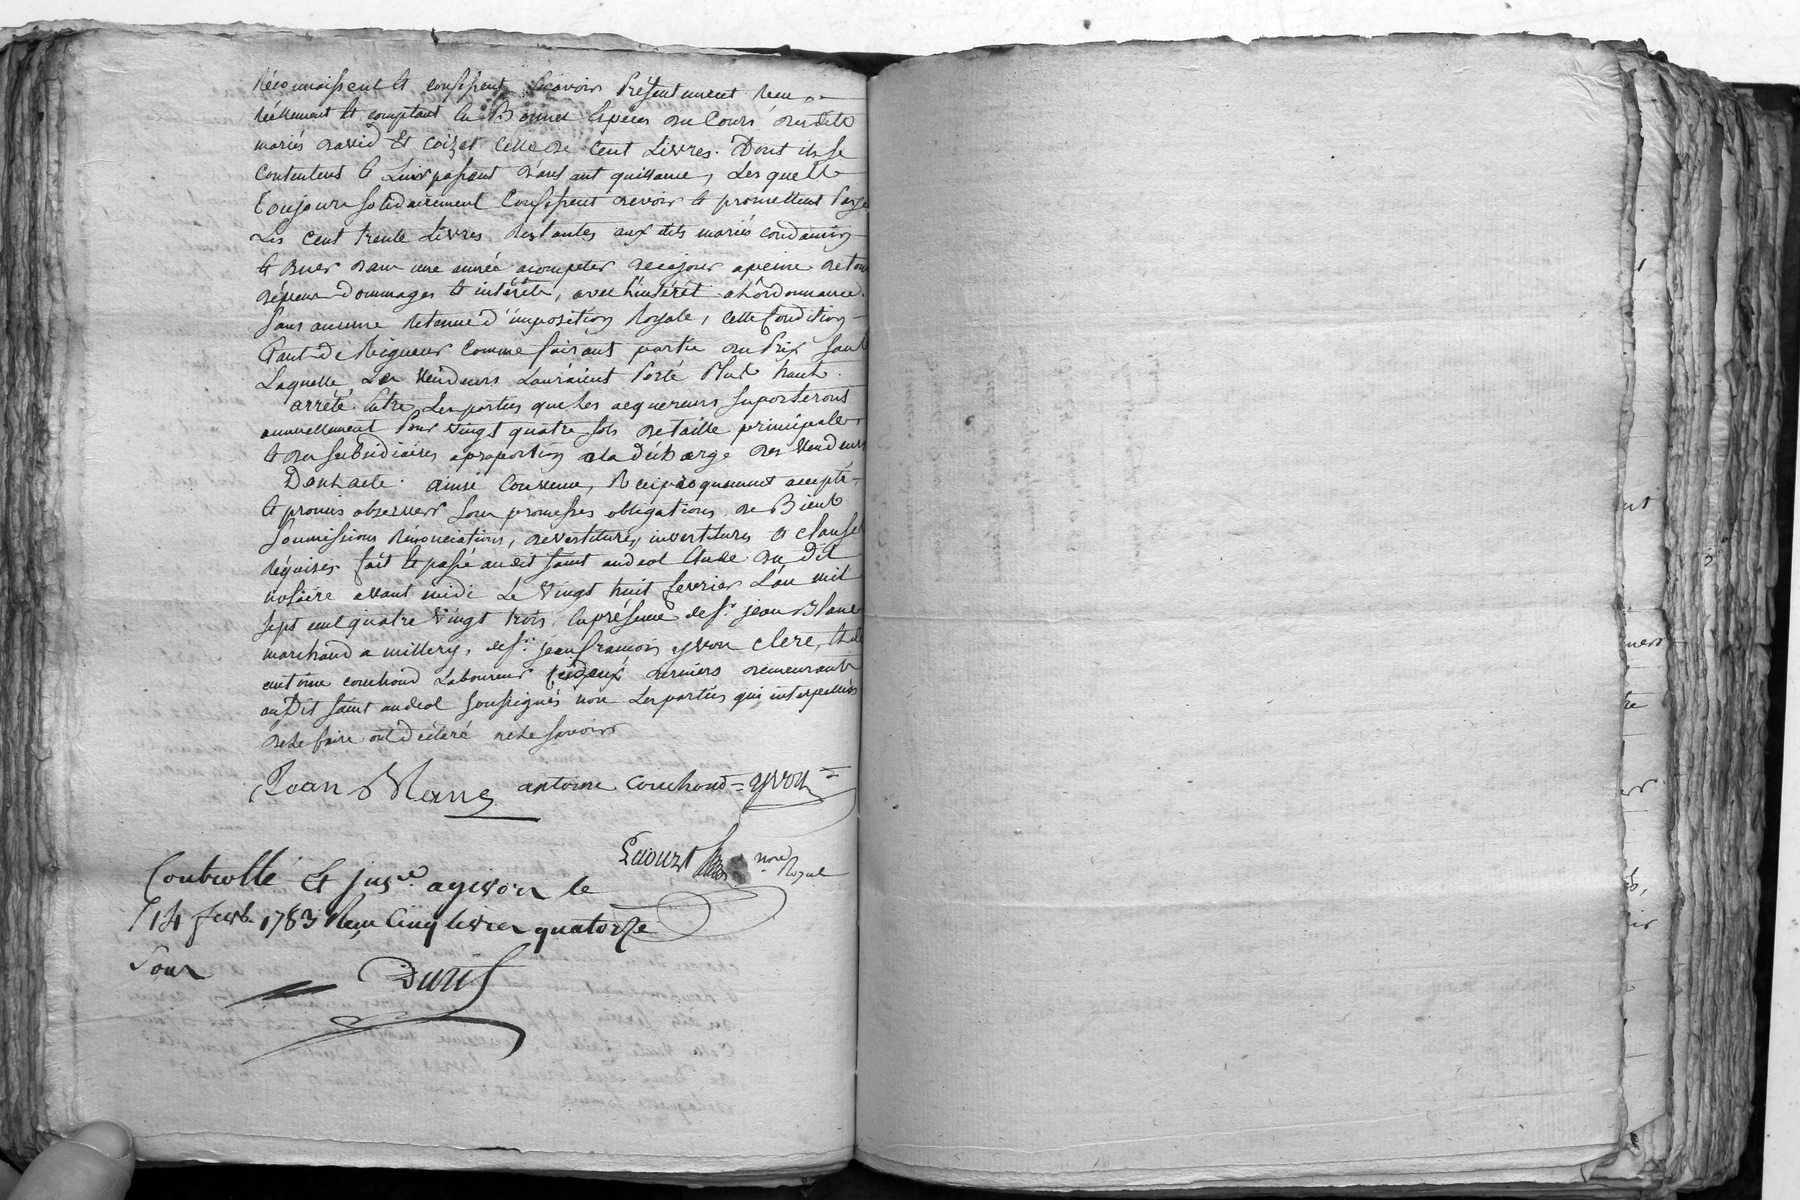 Réconnaissent et confessent avoir présentement recu
réellement et comptant en Bonnes Espèces du Cours desdits
mariés david et coizet celle de Cent Livres. Dont ils se
contentent et Leur passent d'autant quittance, Lesquels
toujours solidairement Confessent devoir et promettent Paÿer
Les Cent trente Livres restantes aux dits mariés condamin
et dans une année acompter de cejour apeine de tous
dépens dommages et intérêts, avec l'intérêt a L'ordonnance
Sans aucune Retenue d'imposition Royale, cette Condition
étant De Rigueur Comme faisant partie du Prix sans
Laquelle Les Vendeurs L'auraient Porté Plus haut.
arrêté Entre Les parties que Les acquereurs suporteront
annuellement Pour vingt quatre sols de taille principale
et des subsidiaires aproportion ala Décharge des Vendeurs
Dont acte. ainsi Convenu, Réciproquement accepté
et promis observer sous promesses obligations de Biens
Soumissions Rénonciations, dévestitures, investitures et clauses
Réquises fait et passé audit saint andeol Etude Du Dit
notaire avant midi Le Vingt huit fevrier L'an mil
sept cent quatre Vingt trois. En présence de Sr. jean Blanc
marchand a millery, de Sr. jean francois yvon clerc, et de
antoine couchoud Laboureur ces deux derniers demeurant
au Dit saint andeol soussignés non Les parties qui interpellées
de Le faire ont déclaré ne Le savoir
Jean Blanc antoine couchoud = yvon =
nore Royal
Controllé et jnsé. agivors le
14 1783 Reçu Cinq livres quatorze
Sous